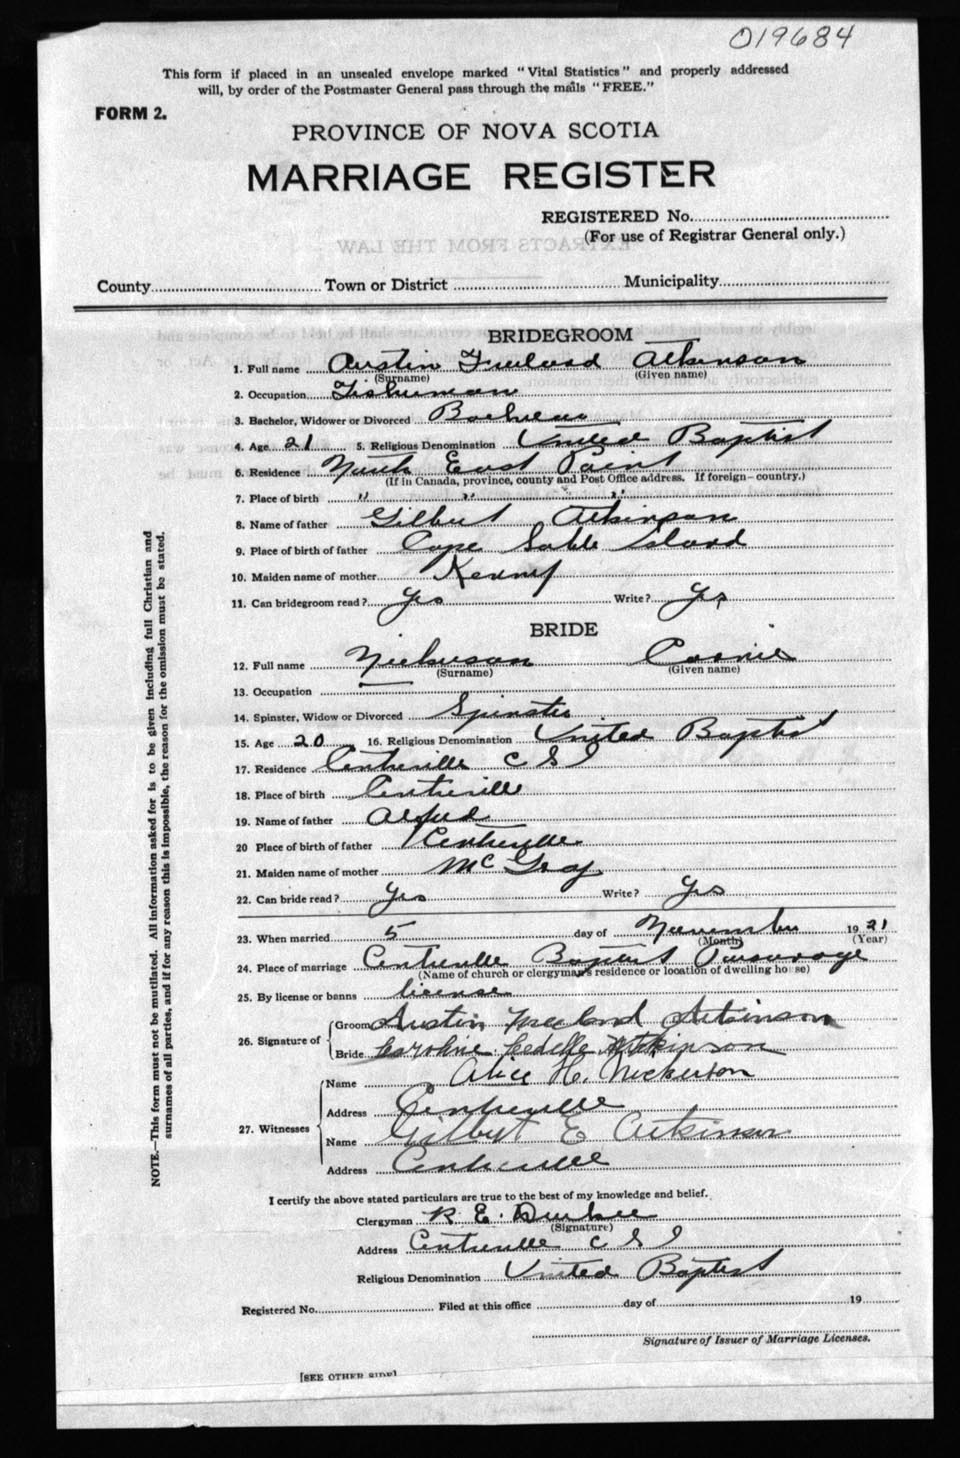 019684
This form if placed in an unsealed envelope marked "Vital Statistics" and properly addressed
will, by order of the Postmaster General pass through the mails "FREE."
FORM 2.
PROVINCE OF NOVA SCOTIA
MARRIAGE REGISTER
REGISTERED No.
(For use of Registrar General only.)
EXTRACTS FROM THE LAW
County Town or District Municipality
BRIDEGROOM
1. Full name Austin Freeland Atkinson
(Surname) (Given name)
2. Occupation Fisherman
3. Bachelor, Widower or Divorced Bachelor
4. Age 21 5. Religious Denomination United Baptist
6. Residence North East Point
(If in Canada, province, county and Post Office address. If foreign—country.)
7. Place of birth " " "
8. Name of father Gilbert Atkinson
9. Place of birth of father Cape Sable Island
10. Maiden name of mother Kenny
11. Can bridegroom read? Yes Write? Yes
BRIDE
12. Full name Nickerson
(Surname) (Given name)
13. Occupation —
14. Spinster, Widow or Divorced Spinster
15. Age 20 16. Religious Denomination United Baptist
17. Residence Centreville C S I
18. Place of birth Centreville
19. Name of father Alfred
20 Place of birth of father Centreville
21. Maiden name of mother McGray
22. Can bride read? Yes Write? Yes
23. When married 5 day of November 1921
(Month) (Year)
24. Place of marriage Centreville Baptist Parsonage
(Name of church or clergyman's residence or location of dwelling house)
25. By license or banns license
26. Signature of Groom Austin Freeland Atkinson
Bride Caroline Atkinson
27. Witnesses Name Alice H. Nickerson
Address Centreville
Name Gilbert E Atkinson
Address Centreville
I certify the above stated particulars are true to the best of my knowledge and belief.
Clergyman R. E. Durkee
(Signature)
Address Centreville C S I
Religious Denomination United Baptist
Registered No. Filed at this office day of 19
Signature of Issuer of Marriage Licenses.
[SEE OTHER SIDE]
NOTE.—This form must not be mutilated. All information asked for is to be given including full Christian and
surnames of all parties, and if for any reason this is impossible, the reason for the omission must be stated.